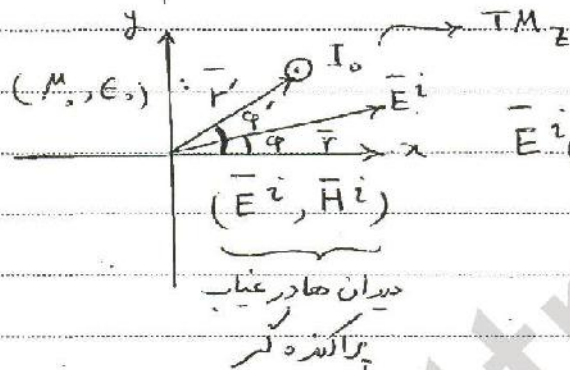 y
I₀ TM_z
(μ₀, ε₀) r̄′ Ē^i
φ′
φ r̄ x Ē^i
(Ē^i, H̄^i)
میدان ها در غیاب
پراکنده گر